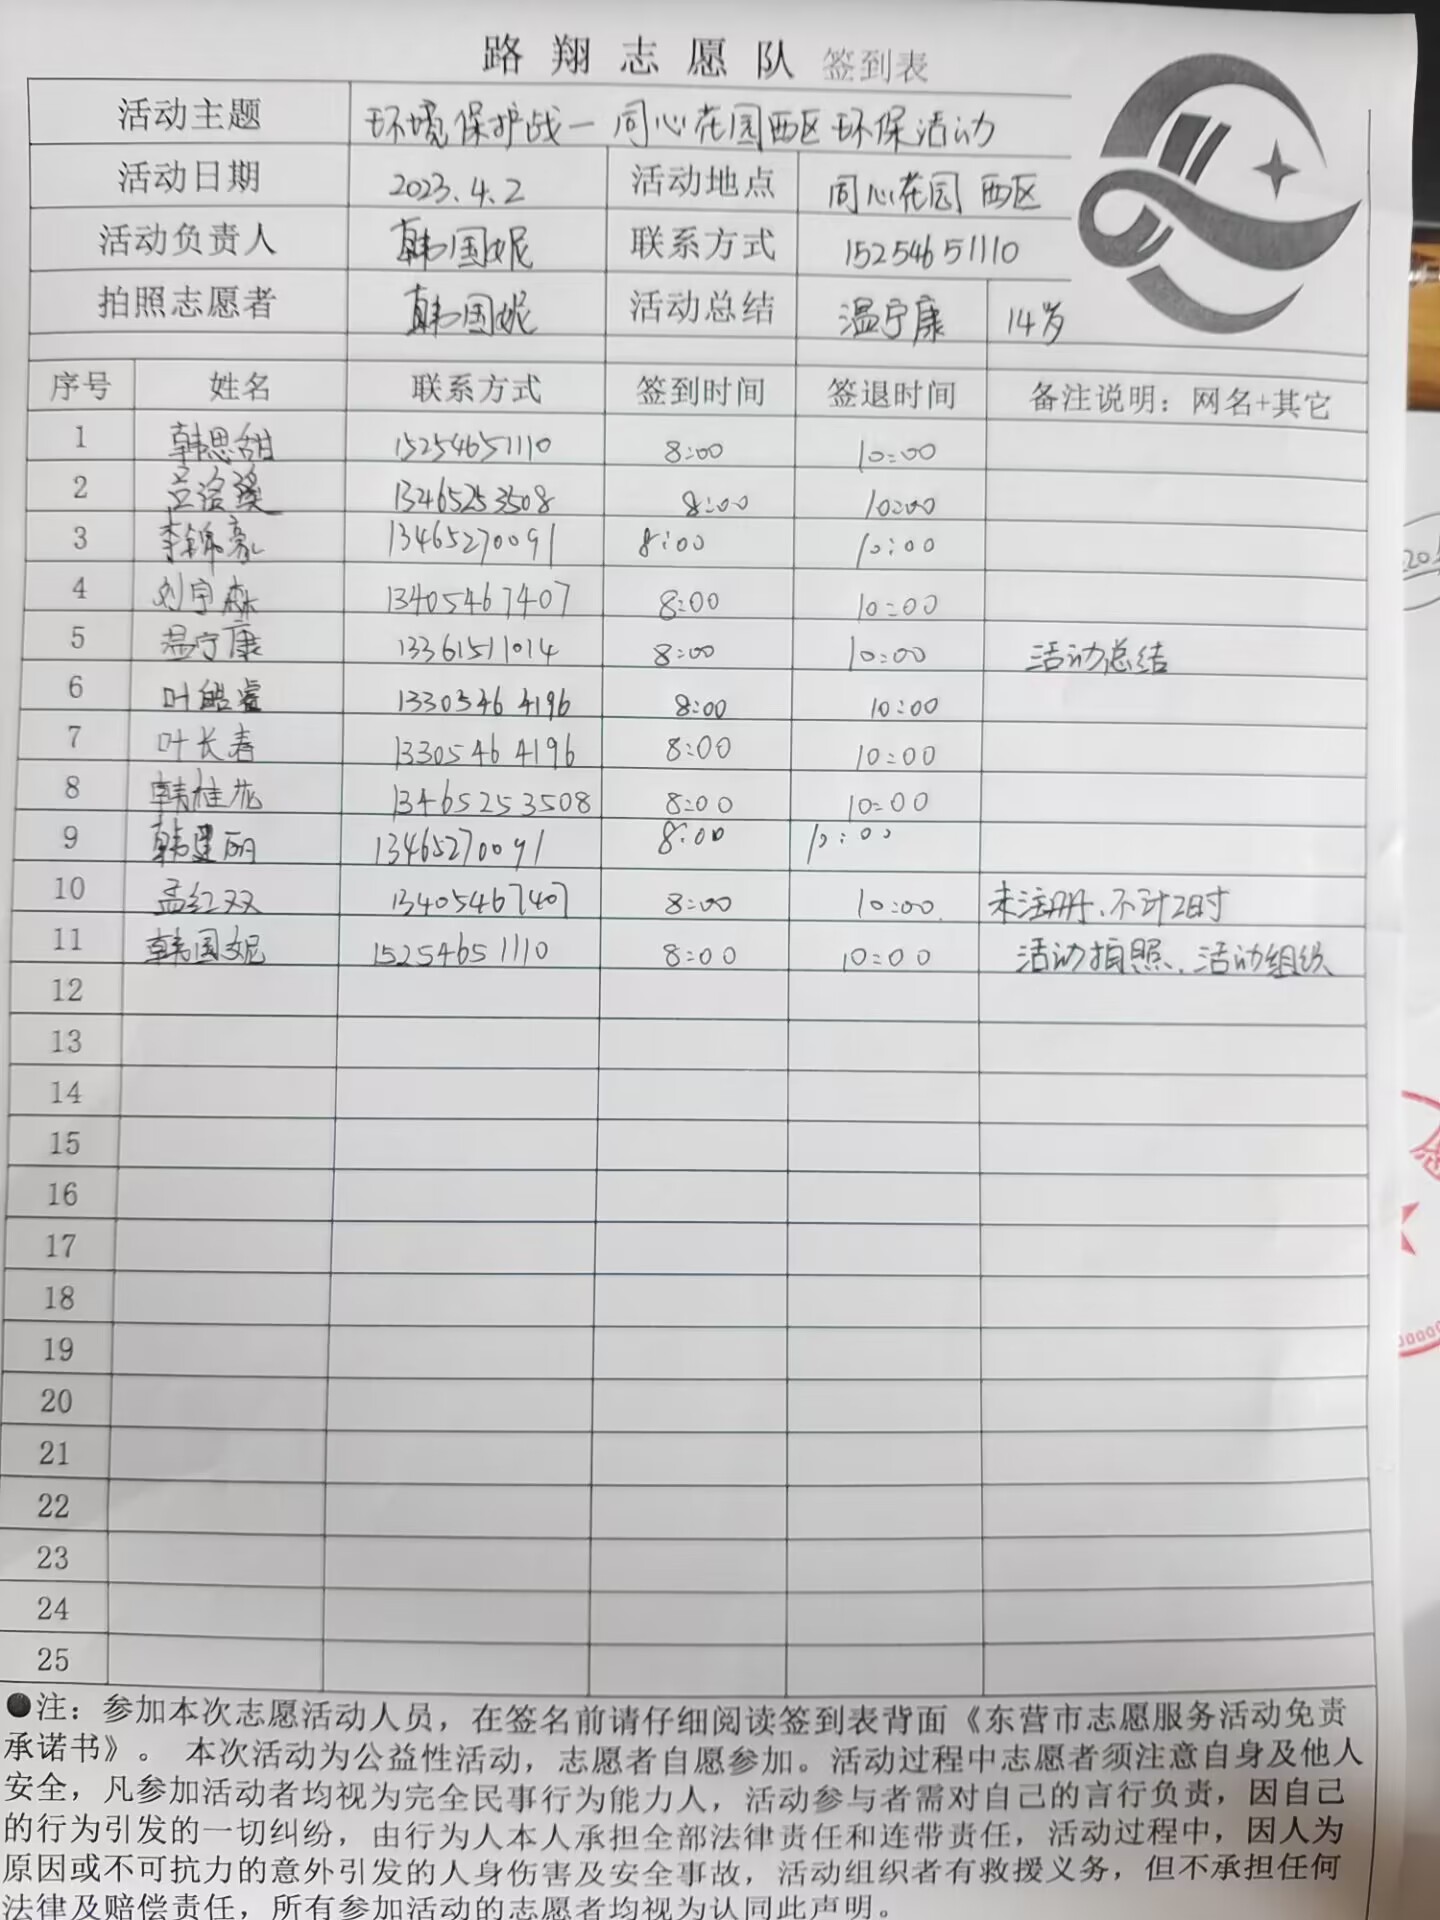 路翔志愿队 签到表
活动主题 环境保护战一同心花园西区环保活动
活动日期 2023.4.2 活动地点 同心花园 西区
活动负责人 韩国妮 联系方式 15254651110
拍照志愿者 韩国妮 活动总结 温宁康 14岁
序号 姓名 联系方式 签到时间 签退时间 备注说明：网名+其它
1 韩思甜 15254651110 8:00 10:00
2 13465253508 8:00 10:00
3 李锦豪 13465270091 8:00 10:00
4 刘宇森 13405467407 8:00 10:00
5 温宁康 13361511014 8:00 10:00 活动总结
6 叶皓睿 13305464196 8:00 10:00
7 叶长春 13305464196 8:00 10:00
8 韩桂花 13465253508 8:00 10:00
9 韩建丽 13465270091 8:00 10:00
10 孟红双 13405467407 8:00 10:00. 未注册、不计时
11 韩国妮 15254651110 8:00 10:00 活动拍照、活动组织
12
13
14
15
16
17
18
19
20
21
22
23
24
25
●注：参加本次志愿活动人员，在签名前请仔细阅读签到表背面《东营市志愿服务活动免责
承诺书》。 本次活动为公益性活动，志愿者自愿参加。活动过程中志愿者须注意自身及他人
安全，凡参加活动者均视为完全民事行为能力人，活动参与者需对自己的言行负责，因自己
的行为引发的一切纠纷，由行为人本人承担全部法律责任和连带责任，活动过程中，因人为
原因或不可抗力的意外引发的人身伤害及安全事故，活动组织者有救援义务，但不承担任何
法律及赔偿责任，所有参加活动的志愿者均视为认同此声明。